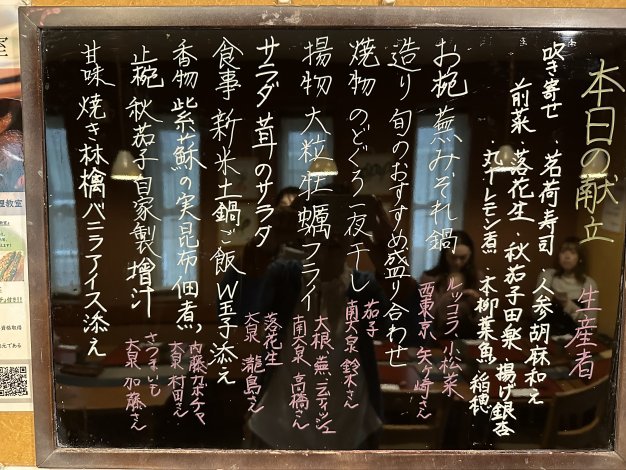 本日の献立
生産者
吹き寄せ 茗荷寿司・人参胡麻和え
前菜 落花生・秋茄子田楽・揚げ銀杏
丸十レモン煮・木柳葉魚・稲穂
お椀 蕪みぞれ鍋
ルッコラ、小松菜
西東京 矢ヶ崎さん
造り 旬のおすすめ盛り合わせ
焼物 のどぐろ一夜干し
茄子
南大泉 鈴木さん
揚物 大粒牡蠣フライ
大根、蕪、ラディッシュ
南大泉 高橋さん
サラダ 茸のサラダ
落花生
大泉 瀧島さん
食事 新米土鍋ご飯 W玉子添え
香物 紫蘇の実昆布佃煮,
内藤カボチャ
大泉 村田さん
止椀 秋茄子自家製増汁
さつまいも
大泉 加藤さん
甘味 焼き林檎バニラアイス添え